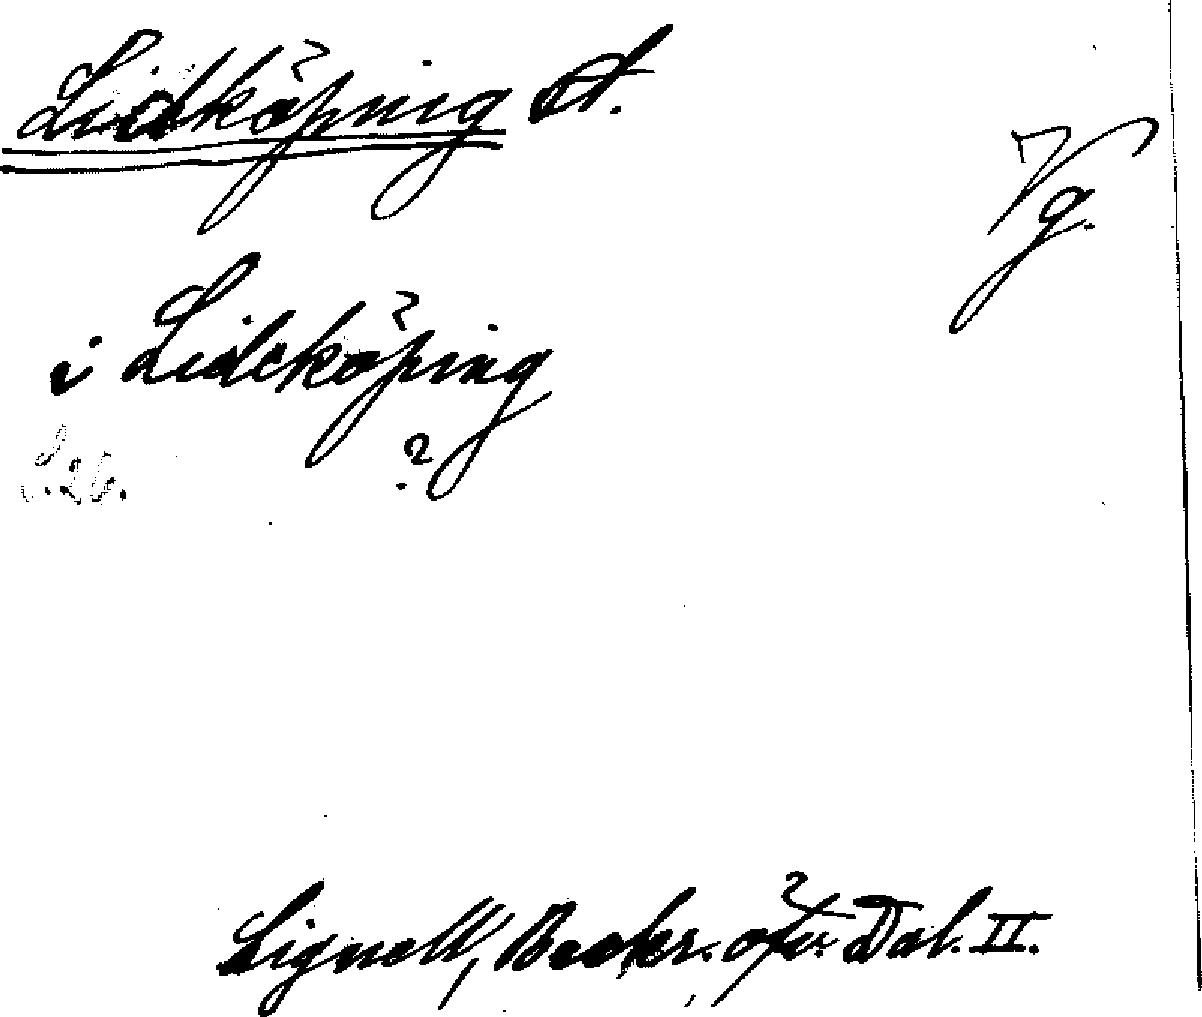 Lidköping st.
Vg.
i Lideköping
?
S. 26.
Lignell, Beskr. öfv. Dal. II.